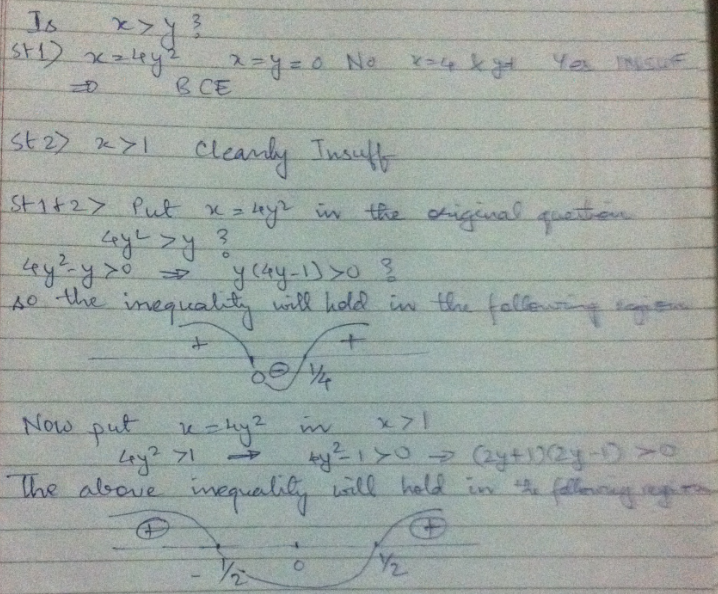 Is x > y ?
St 1) x = 4y² x = y = 0 No x=4 & y=1 Yes INSUF
⇒ BCE
St 2) x > 1 Clearly Insuff
St 1 + 2> Put x = 4y² in the original question
4y² > y ?
4y² - y > 0 ⇒ y(4y-1) > 0 ?
so the inequality will hold in the following region
+ +
0 ⊖ 1/4
Now put x = 4y² in x > 1
4y² > 1 ⇒ 4y² - 1 > 0 ⇒ (2y+1)(2y-1) > 0
The above inequality will hold in the following region
+ +
- 1/2 0 1/2